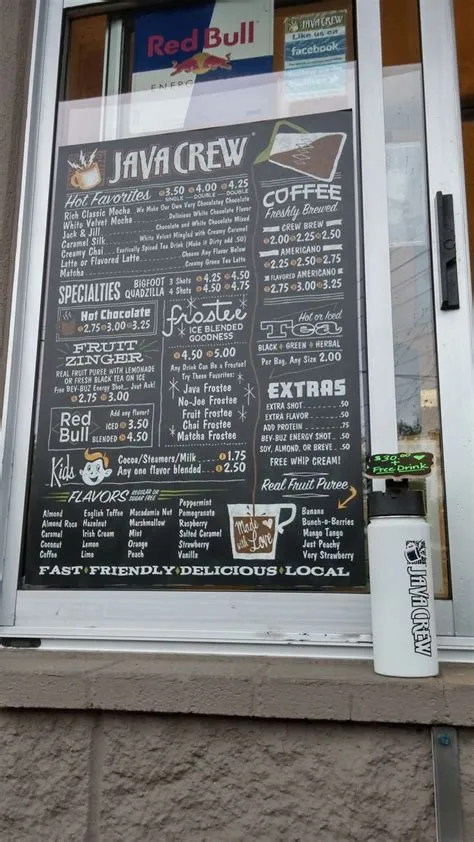 Red Bull
ENERG
JAVA CREW
Like us on
facebook
JAVA CREW
Hot Favorites
3.50 4.00 4.25
SINGLE DOUBLE DOUBLE
Rich Classic Mocha We Make Our Own Very Chocolatey Chocolate
White Velvet Mocha Delicious White Chocolate Flavor
Jack & Jill Chocolate and White Chocolate Mixed
Caramel Silk White Velvet Mingled with Creamy Caramel
Creamy Chai Exotically Spiced Tea Drink (Make it Dirty add .50)
Latte or Flavored Latte Choose Any Flavor Below
Matcha Creamy Green Tea Latte
SPECIALTIES
BIGFOOT 3 Shots 4.25 4.50
QUADZILLA 4 Shots 4.50 4.75
Hot Chocolate
2.75 3.00 3.25
FRUIT
ZINGER
REAL FRUIT PUREE WITH LEMONADE
OR FRESH BLACK TEA ON ICE
Free BEV-BUZ Energy Shot... Just Ask!
2.75 3.00
Red Bull
Add any flavor!
ICED 3.50
BLENDED 4.50
frostee
ICE BLENDED
GOODNESS
4.50 5.00
Any Drink Can Be a Frostee!
Try These Favorites:
Java Frostee
No-Joe Frostee
Fruit Frostee
Chai Frostee
Matcha Frostee
Kids
Cocoa/Steamers/Milk 1.75
Any one flavor blended 2.50
COFFEE
Freshly Brewed
CREW BREW
2.00 2.25 2.50
AMERICANO
2.25 2.50 2.75
FLAVORED AMERICANO
2.75 3.00 3.25
Hot or Iced
Tea
BLACK GREEN HERBAL
Per Bag, Any Size 2.00
EXTRAS
EXTRA SHOT .50
EXTRA FLAVOR .50
ADD PROTEIN .75
BEV-BUZ ENERGY SHOT .50
SOY, ALMOND, OR BREVE .50
FREE WHIP CREAM!
Real Fruit Puree
Banana
Bunch-o-Berries
Mango Tango
Just Peachy
Very Strawberry
Made with Love
FLAVORS REGULAR OR SUGAR FREE
Almond
Almond Roca
Caramel
Coconut
Coffee
English Toffee
Hazelnut
Irish Cream
Lemon
Lime
Macadamia Nut
Marshmallow
Mint
Orange
Peach
Peppermint
Pomegranate
Raspberry
Salted Caramel
Strawberry
Vanilla
FAST FRIENDLY DELICIOUS LOCAL
$30.00
Free Drink
JAVA CREW